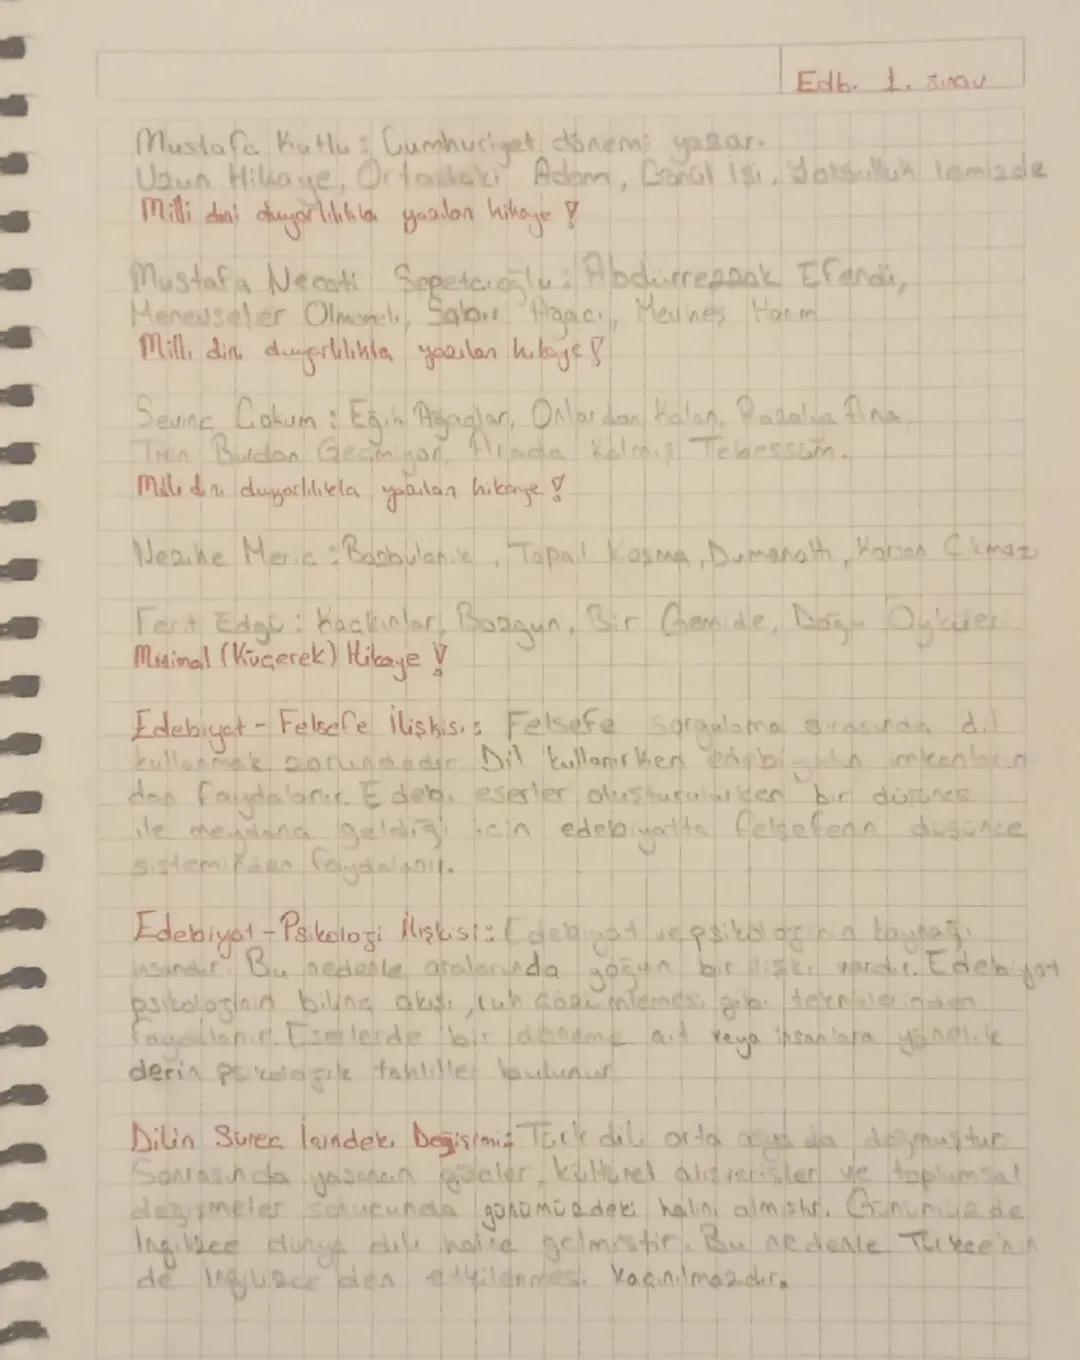 Edb. 1. sınav
Mustafa Kutlu: Cumhuriyet dönemi yazar.
Uzun Hikaye, Ortadaki Adam, Gönül İşi, Yoksulluk İçimizde
Milli dini duyarlılıkla yazılan hikaye !
Mustafa Necati Sepetcioğlu: Abdürrezzak Efendi,
Menevşeler Ölmemeli, Sabır Ağacı, Meçhul Hanım
Milli dini duyarlılıkla yazılan hikaye !
Sevinç Çokum: Eğik Ağaçlar, Onlardan Kalan, Rozalya Ana,
Tren Burdan Geçmiyor, Arada Kalmış Tebessüm.
Milli dini duyarlılıkla yazılan hikaye !
Nezihe Meriç: Bozbulanık, Topal Koşma, Dumanaltı, Karşın Çıkmaz
Ferit Edgü: Kaçkınlar, Bozgun, Bir Gemide, Doğu Öyküleri
Minimal (Küçürek) Hikaye !
Edebiyat - Felsefe İlişkisi: Felsefe sorgulama sırasında dil
kullanmak zorundadır. Dil kullanırken edebiyatın imkanların
dan faydalanır. Edebi eserler oluşturulurken bir düşünce
ile meydana geldiği için edebiyatta felsefenin düşünce
sisteminden faydalanır.
Edebiyat - Psikoloji İlişkisi: Edebiyat ve psikolojinin kaynağı
insandır. Bu nedenle aralarında yoğun bir ilişki vardır. Edebiyat
psikolojinin bilinç akışı, ruh çözümlemesi gibi tekniklerinden
faydalanır. Eserlerde bir döneme ait veya insanlara yönelik
derin psikolojik tahliller bulunur.
Dilin Süreç İçindeki Değişimi: Türk dili orta asya da doğmuştur.
Sonrasında yaşanan göçler, kültürel alışverişler ve toplumsal
değişmeler sonucunda günümüzdeki halini almıştır. Günümüzde
İngilizce dünya dili haline gelmiştir. Bu nedenle Türkce'nin
de İngilizce'den etkilenmesi kaçınılmazdır.